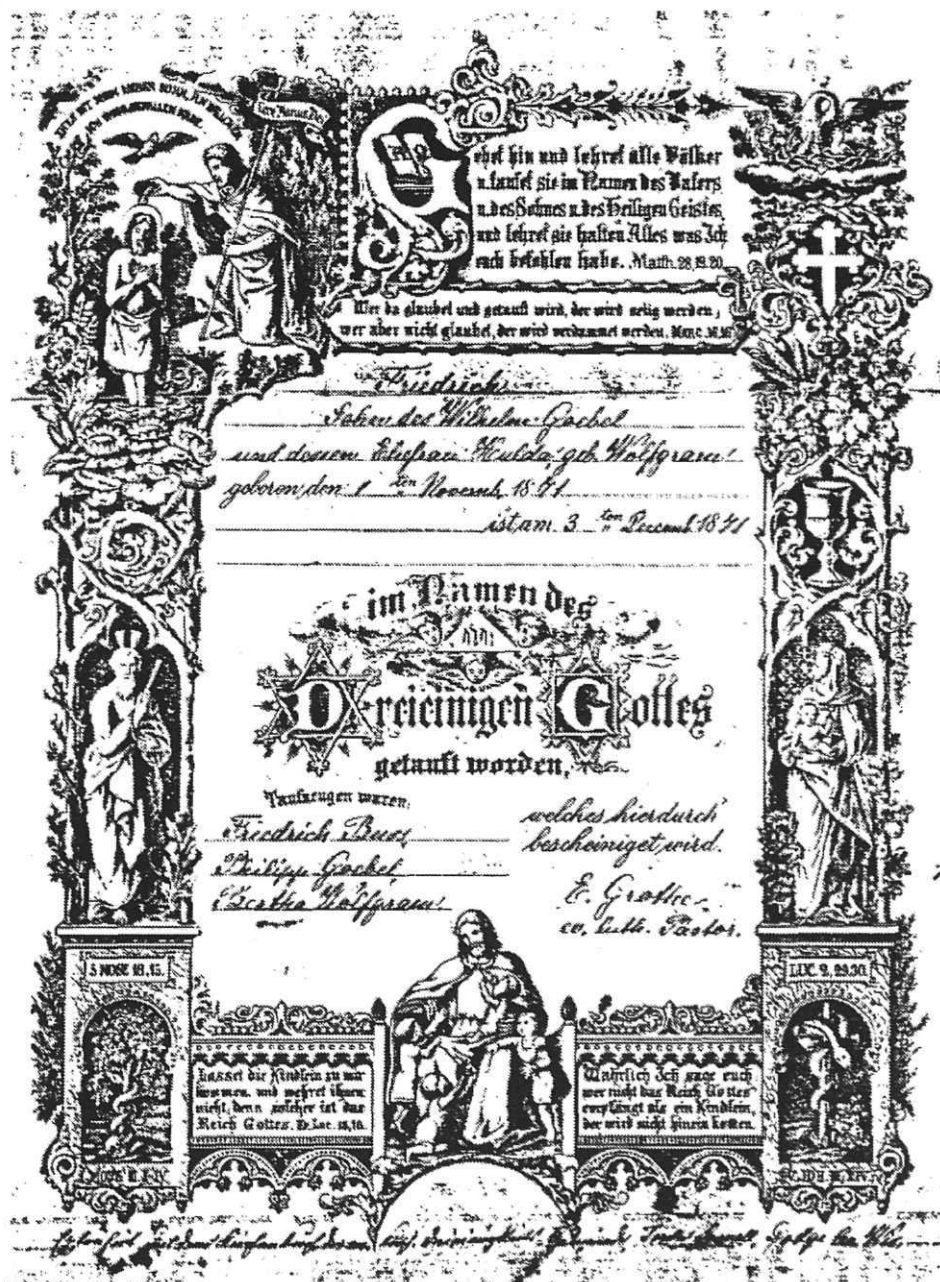 DIES IST MEIN LIEBER SOHN, AN WELCHEM
ICH WOHLGEFALLEN HABE.
Gehet hin und lehret alle Völker
u. taufet sie im Namen des Vaters
u. des Sohnes u. des Heiligen Geistes,
und lehret sie halten Alles was Ich
euch befohlen habe. Matth. 28, 19. 20.
Wer da glaubet und getauft wird, der wird selig werden;
wer aber nicht glaubet, der wird verdammet werden. Marc. 16, 16.
Friedrich
Sohn des Wilhelm Goebel
und dessen Ehefrau Hulda, geb. Wolfgram
geboren den 1 ten Novemb. 1871
ist am 3 ten Decemb. 1871
im Namen des
Dreieinigen Gottes
getauft worden,
Taufzeugen waren:
Friedrich Buss,
Philipp Goebel
Bertha Wolfgram
welches hierdurch
bescheiniget wird.
E. Grothe
ev. luth. Pastor.
LUC. 2, 29.30.
Lasset die Kindlein zu mir
kommen, und wehret ihnen
nicht, denn solcher ist das
Reich Gottes. Ev. Luc. 18, 16.
Wahrlich Ich sage euch
wer nicht das Reich Gottes
empfängt als ein Kindlein,
der wird nicht hinein kommen.